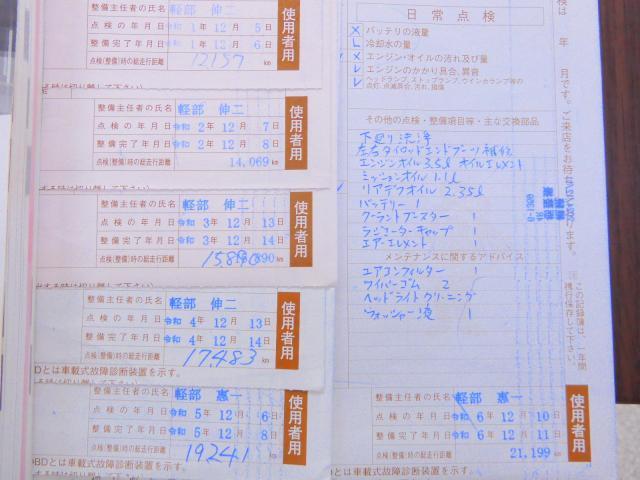 整備主任者の氏名 軽部 伸二
点検の年月日 令和1年12月5日
整備完了年月日 令和1年12月6日
点検(整備)時の総走行距離 12157 km
使用者用
整備主任者の氏名 軽部 伸二
点検の年月日 令和2年12月7日
整備完了年月日 令和2年12月8日
点検(整備)時の総走行距離 14,069 km
使用者用
整備主任者の氏名 軽部 伸二
点検の年月日 令和3年12月13日
整備完了年月日 令和3年12月14日
点検(整備)時の総走行距離 km
使用者用
整備主任者の氏名 軽部 伸二
点検の年月日 令和4年12月13日
整備完了年月日 令和4年12月14日
点検(整備)時の総走行距離 17,483 km
使用者用
BDとは車載式故障診断装置を示す。
整備主任者の氏名 軽部 惠一
点検の年月日 令和5年12月6日
整備完了年月日 令和5年12月8日
点検(整備)時の総走行距離 19241 km
使用者用
OBDとは車載式故障診断装置を示す。
日常点検
バッテリの液量
冷却水の量
エンジン・オイルの汚れ及び量
エンジンのかかり具合、異音
ヘッドランプ、ストップランプ、ウインカランプ等の
点灯、点滅具合、汚れ、損傷
その他の点検・整備項目等・主な交換部品
下廻り洗浄
左右タイロッドエンドブーツ補修
エンジンオイル 3.5ℓ オイルエレメント
ミッションオイル 1.1ℓ
リアデフオイル 2.35ℓ
バッテリー 1
クーラントブースター 1
ラジエーターキャップ 1
エアーエレメント 1
メンテナンスに関するアドバイス
エアコンフィルター 1
ワイパーゴム 2
ヘッドライトクリーニング
ウォッシャー液 1
整備主任者の氏名 軽部 惠一
点検の年月日 令和6年12月10日
整備完了年月日 令和6年12月11日
点検(整備)時の総走行距離 21,199 km
使用者用
OBDとは車載式故障診断装置を示す。
検は 年 月です。ご来店をお待ち
この記録簿は、一年間
携行保存して下さい。